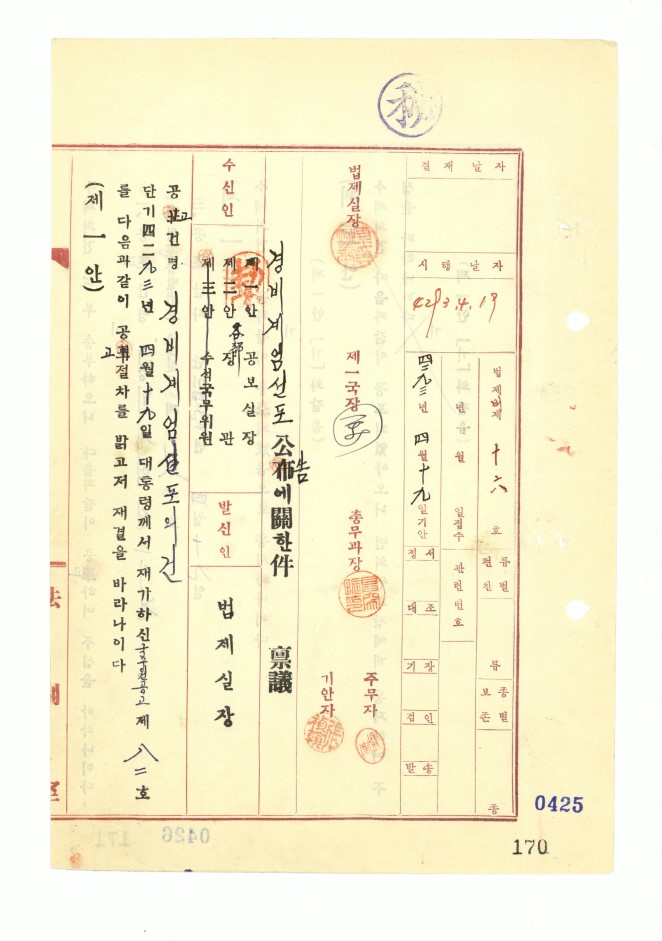 결재날자
시행날자
4293.4.19
법제 제 十六 호
년 월 일접수
四二九三년 四월 十九일기안
편찬 류별
관련번호
정서
대조
기장
검인
발송
류
보존 종별
종
법제실장
제一국장
총무과장
주무자
기안자
경비계엄선포 公布에 關한 件 稟議
告
수신인
제一안 공보실장
제二안 各部장관
제三안 수석국무위원
발신인
법제실장
공포건명 경비계엄선포의 건
고
단기 四二九三년 四월 十九일 대통령께서 재가하신 국무원공고 제 八二 호
를 다음과같이 공포절차를 밝고저 재결을 바라나이다
고
(제一안)
0425
170